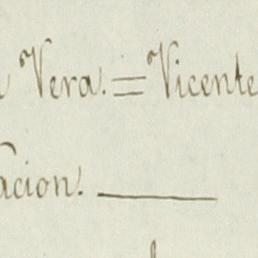 Vera. = Vicente
acion.